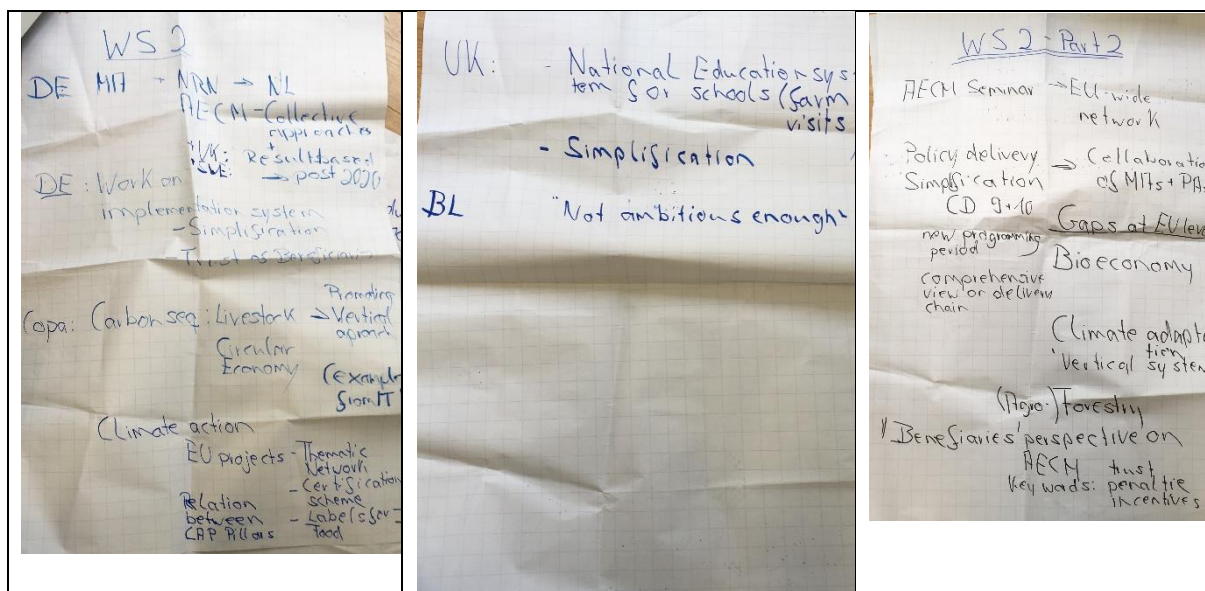 WS 2
DE MA + NRN → NL
AECM - Collective
approaches
+
+UK: Resultbased
→ post 2020
DE: Work on
implementation system
- Simplification
- Trust as Beneficiari
Copa: Carbon seq: Livestock → Promoting
Vertical
aproach
Circular
Economy
(example
from IT
Climate action
EU projects - Thematic
Network
- Certification
scheme
Relation
between
CAP Pillars
- Labels for
food
UK: - National Education sys-
tem for schools (farm
visits
- Simplification
BL "Not ambitious enough"
WS 2 - Part 2
AECM Seminar → EU-wide
network
Policy delivery → Collaboratio
Simplification of MAs + PA
CD 9+10
new programming
period
comprehensive
view or delivery
chain
Gaps at EU leve
Bioeconomy
Climate adapta
tion
'Vertical system
(Agro-) Forestry
"Benefiaries' perspective on
AECM trust
Key words: penaltie
incentives